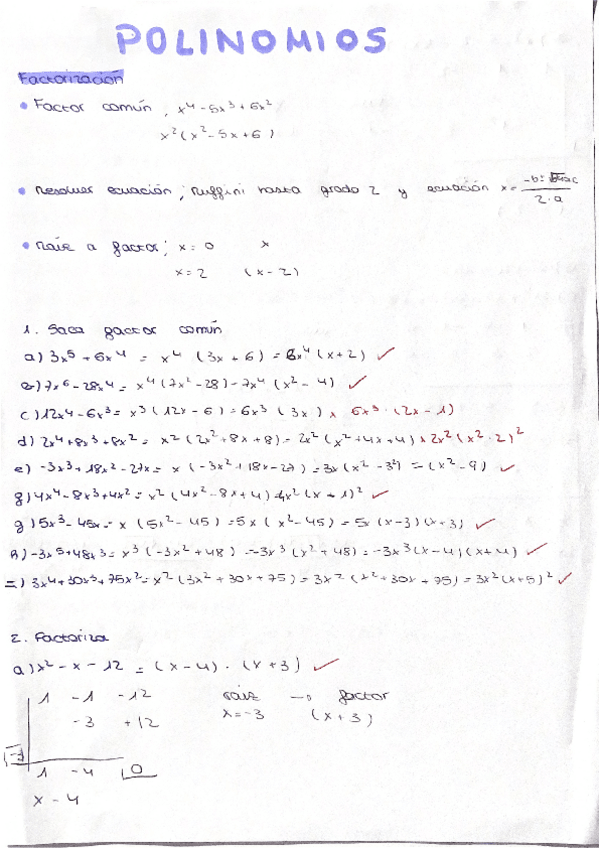 POLINOMIOS
Factorización
• Factor común; x⁴-5x³+6x²
x²(x²-5x+6)
• Resolver ecuación; Ruffini hasta grado 2 y ecuación x=
2·a
• Raíz a factor; x=0 x
x=2 (x-2)
1. Saca factor común
a) 3x⁵+6x⁴ = x⁴ (3x+6) = 3x⁴(x+2) ✓
b) 7x⁶-28x⁴ = x⁴(7x²-28)=7x⁴(x²-4) ✓
c) 12x⁴-6x³= x³(12x-6)=6x³(3x) x 6x³·(2x-1)
d) 2x⁴+8x³+8x²= x²(2x²+8x+8)=2x²(x²+4x+4) x 2x²(x²·2)²
e) -3x³+18x²-27x= x(-3x²+18x-27)=3x(x²-3²) =(x²-9) ✓
f) 4x⁴-8x³+4x²= x²(4x²-8x+4) 4x²(x+1)² ✓
g) 5x³-45x= x(5x²-45)=5x(x²-45)=5x(x-3)(x+3) ✓
h) -3x⁵+48x³= x³(-3x²+48) =-3x³(x²+48)=-3x³(x-4)(x+4) ✓
i) 3x⁴+30x³+75x²= x²(3x²+30x+75)=3x²(x²+30x+75)=3x²(x+5)² ✓
2. Factoriza
a) x²-x-12 = (x-4)·(x+3) ✓
1 -1 -12 raíz → factor
-3 +12 x=-3 (x+3)
-3
1 -4 0
x-4